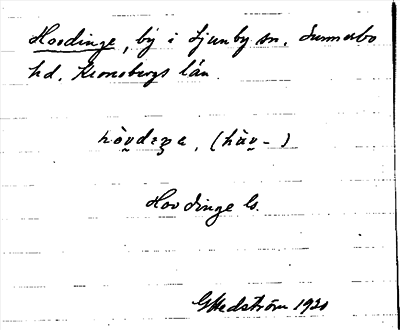 Hovdinge, by i Ljunby sn. Sunnerbo
hd. Kronobergs län.
hòvdɩŋe, (hàv-)
Hovdinge Gs.
GHedström 1920